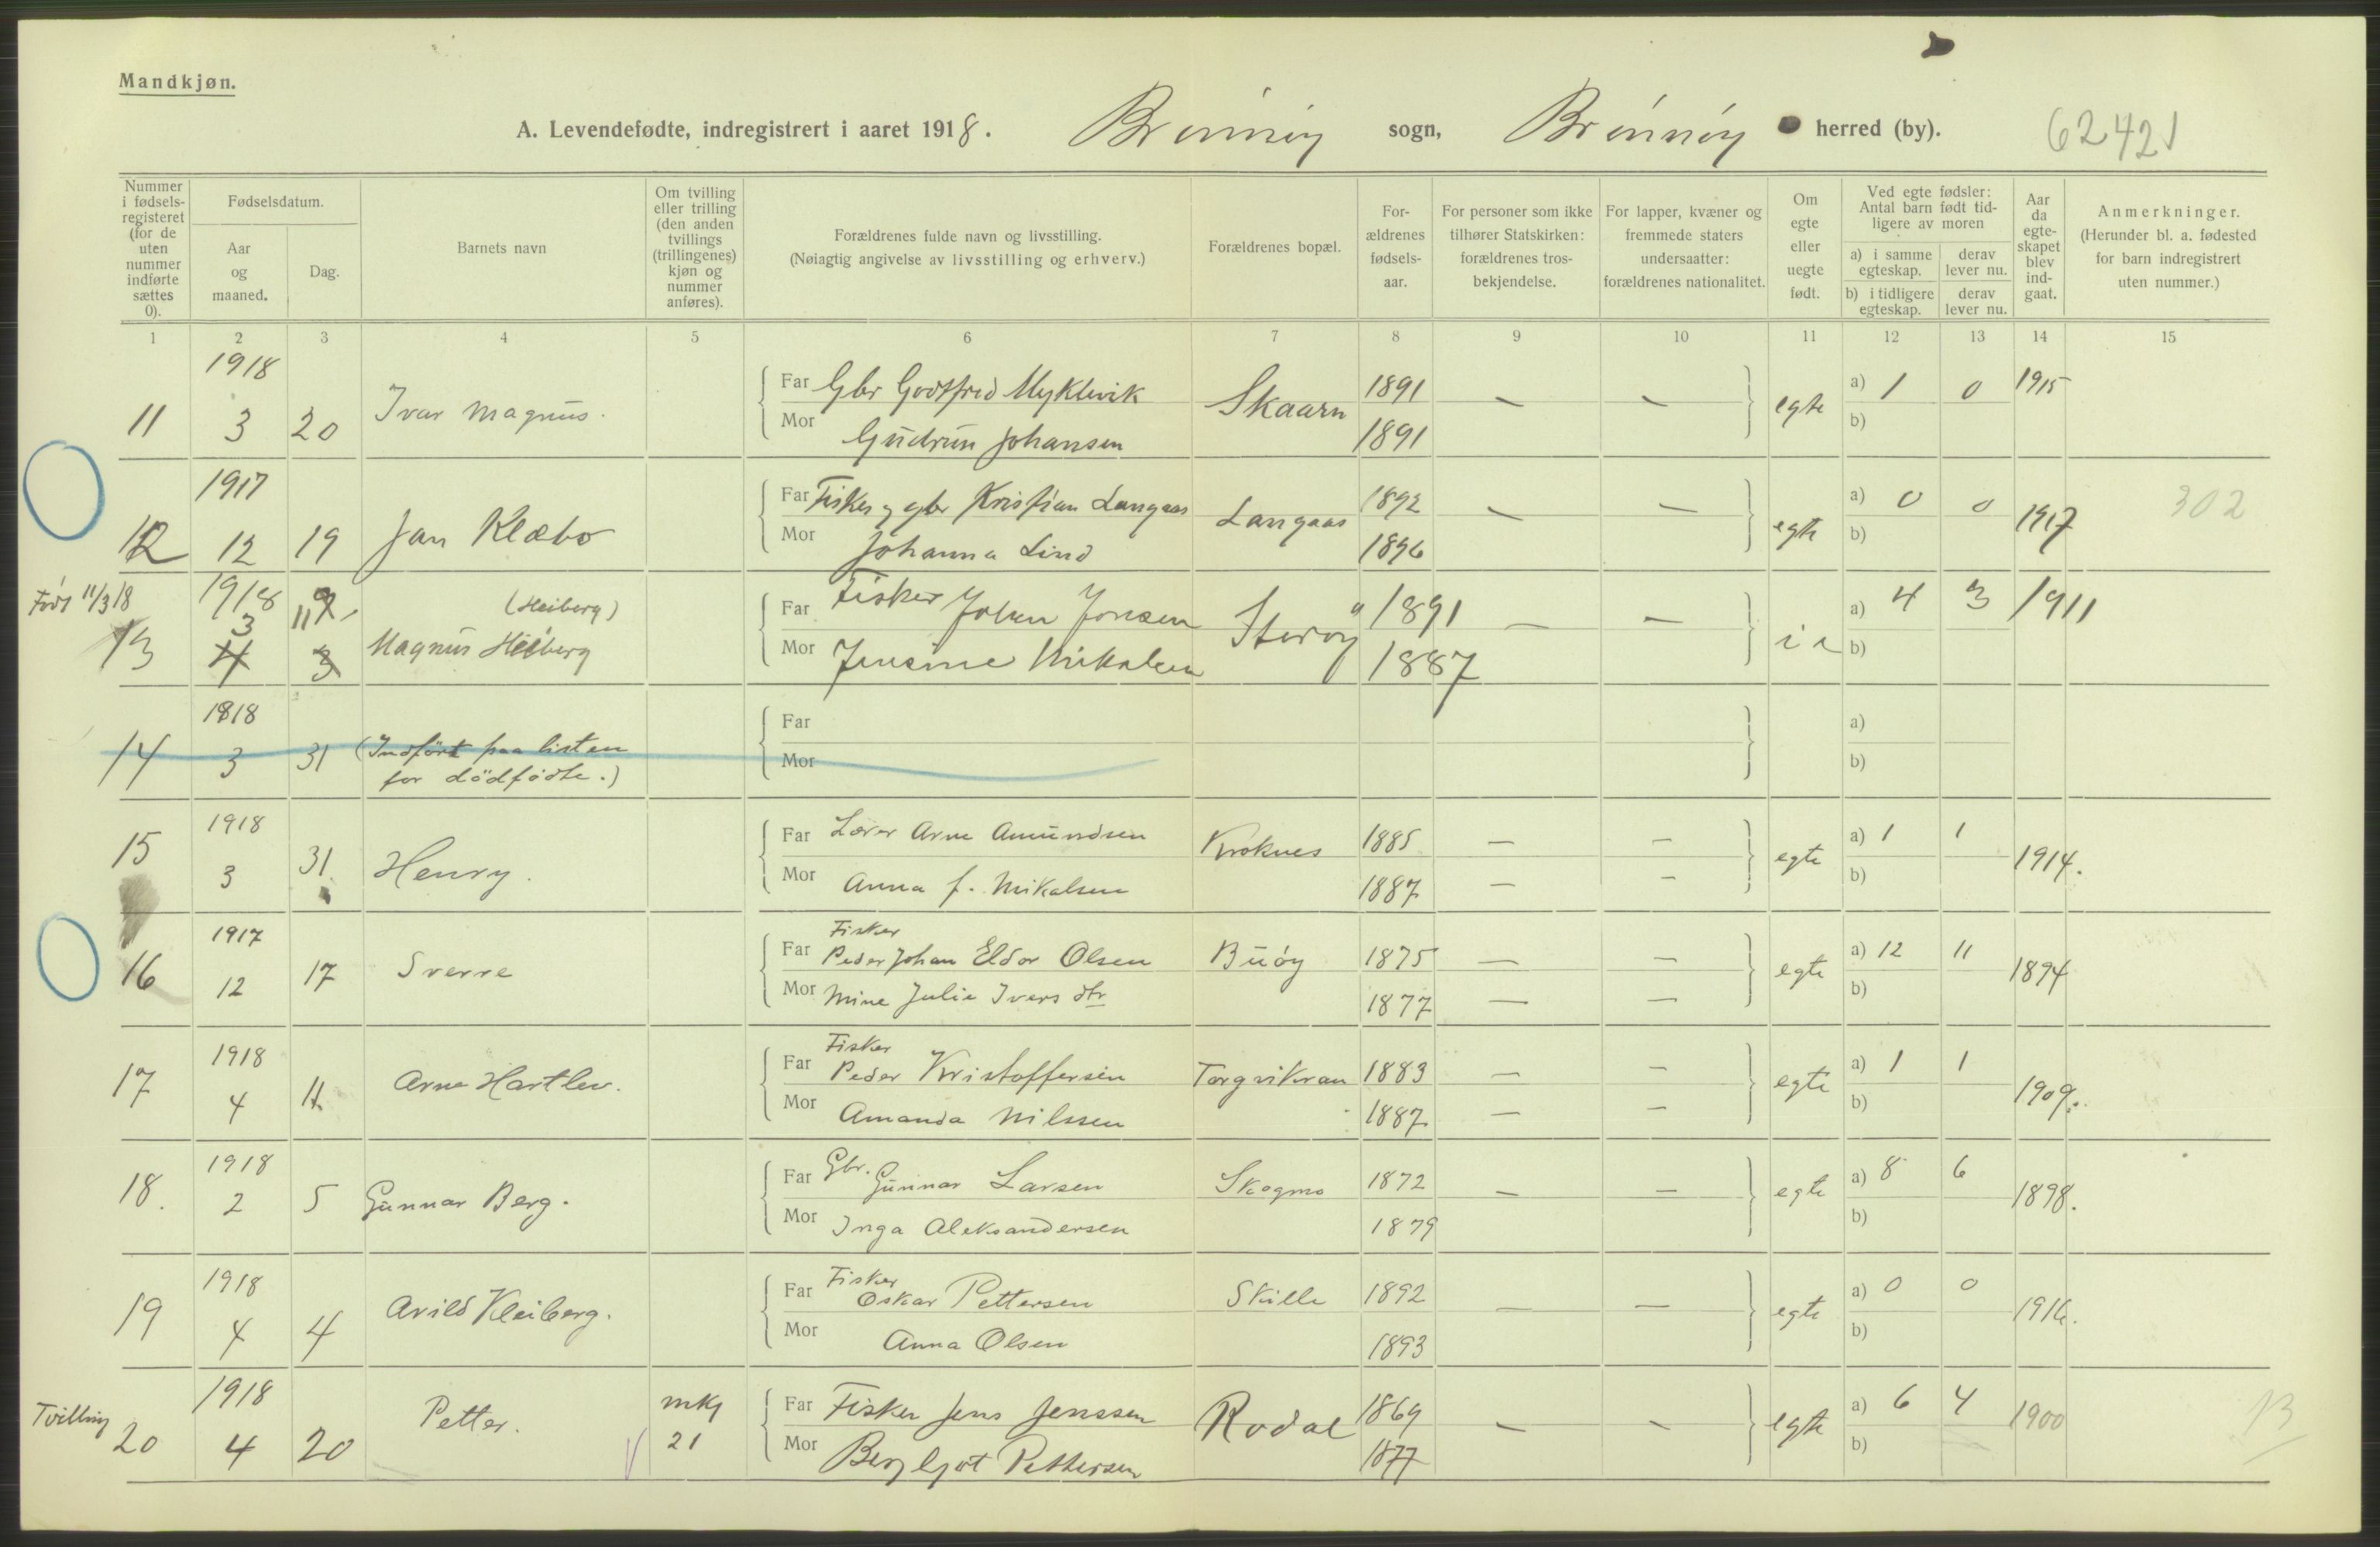 Mandkjøn.
A. Levendefødte, indregistrert i aaret 1918. Brönnöy sogn, Brönnöy herred (by). 62421
Nummer i fødselsregisteret (for de uten nummer indførte sættes 0).
Fødselsdatum.
Aar og maaned.
Dag.
Barnets navn
Om tvilling eller trilling (den anden tvillings (trillingenes) kjøn og nummer anføres).
Forældrenes fulde navn og livsstilling.
(Nøiagtig angivelse av livsstilling og erhverv.)
Forældrenes bopæl.
Forældrenes fødselsaar.
For personer som ikke tilhører Statskirken: forældrenes trosbekjendelse.
For lapper, kvæner og fremmede staters undersaatter: forældrenes nationalitet.
Om egte eller uegte født.
Ved egte fødsler: Antal barn født tidligere av moren
a) i samme egteskap.
derav lever nu.
b) i tidligere egteskap.
derav lever nu.
Aar da egteskapet blev indgaat.
Anmerkninger.
(Herunder bl. a. fødested for barn indregistrert uten nummer.)
1 2 3 4 5 6 7 8 9 10 11 12 13 14 15
1918
11 3 20 Ivar Magnus.
Far Gbr Godtfred Myklevik Skaarn 1891 — — egte a) 1 0 1915
Mor Gudrun Johansen 1891 b)
1917
12 12 19 Jan Klæbo
Far Fisker og gbr Kristian Langaas Langaas 1892 — — egte a) 0 0 1917 302
Mor Johanna Lind 1896 b)
Født 11/3 18
1918
13 3 11 (Heiberg)
4 3 Magnus Heiberg
Far Fisker Johan Jonsen Storöy 1891 — — a) 4 3 1911
Mor Jensine Mikalsen 1887 b)
1918
14 3 31 (Indført paa listen
for dödfödte.)
Far a)
Mor b)
1918
15 3 31 Henry.
Far Lærer Arne Amundsen Kroknes 1885 — — egte a) 1 1 1914.
Mor Anna J. Mikalsen 1887 — — b)
1917
16 12 17 Sverre
Fisker
Far Peder Johan Eldor Olsen Buöy 1875 — — egte a) 12 11 1894
Mor Mine Julie Ivers dtr 1877 — — b)
1918
17 4 11 Arne Hartlev.
Fisker
Far Peder Kristoffersen Torgvikran 1883 — — egte a) 1 1 1909.
Mor Amanda Nilssen 1887 — — b)
1918
18. 2 5 Gunnar Berg.
Far Gbr. Gunnar Larsen Skogmo 1872 — — egte a) 8 6 1898.
Mor Inga Aleksandersen 1879 b)
1918
19 4 4 Arild Kleiberg.
Fisker
Far Oskar Pettersen Skille 1892 — — egte a) 0 0 1916.
Mor Anna Olsen 1893 b)
1918
Tvilling 20 4 20 Petter. mkj
21
Far Fisker Jens Jenssen Rodal 1869 — — egte a) 6 4 1900 B
Mor Bergljot Pettersen 1877 b)